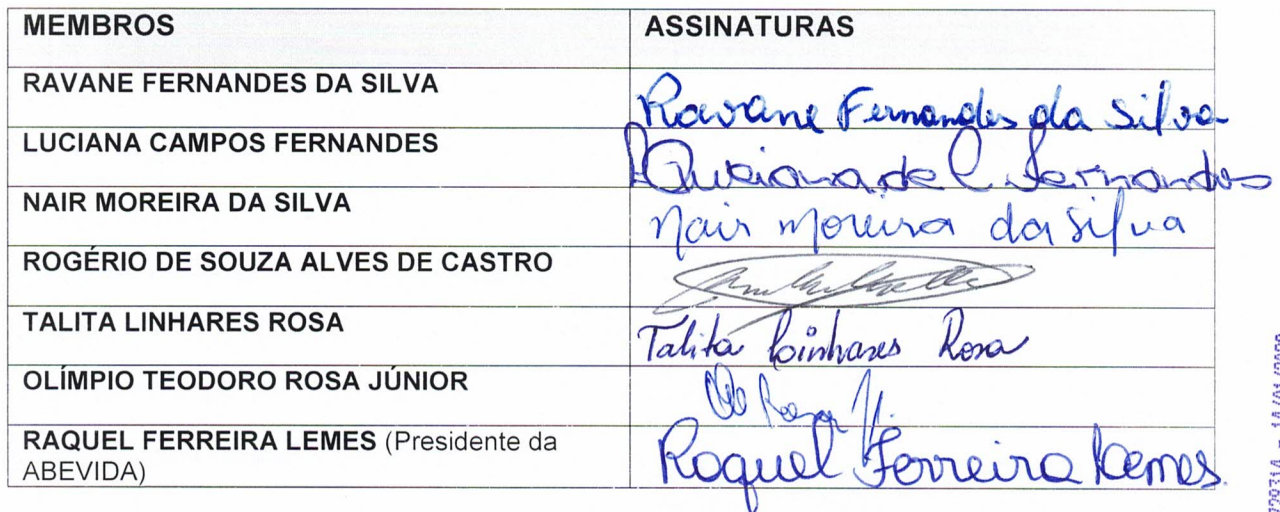 MEMBROS ASSINATURAS
RAVANE FERNANDES DA SILVA Ravane Fernandes da Silva
LUCIANA CAMPOS FERNANDES C Fernandes
NAIR MOREIRA DA SILVA Nair Moreira da Silva
ROGÉRIO DE SOUZA ALVES DE CASTRO
TALITA LINHARES ROSA Talita Linhares Rosa
OLÍMPIO TEODORO ROSA JÚNIOR Rosa Jr.
RAQUEL FERREIRA LEMES (Presidente da
ABEVIDA) Raquel Ferreira Lemes